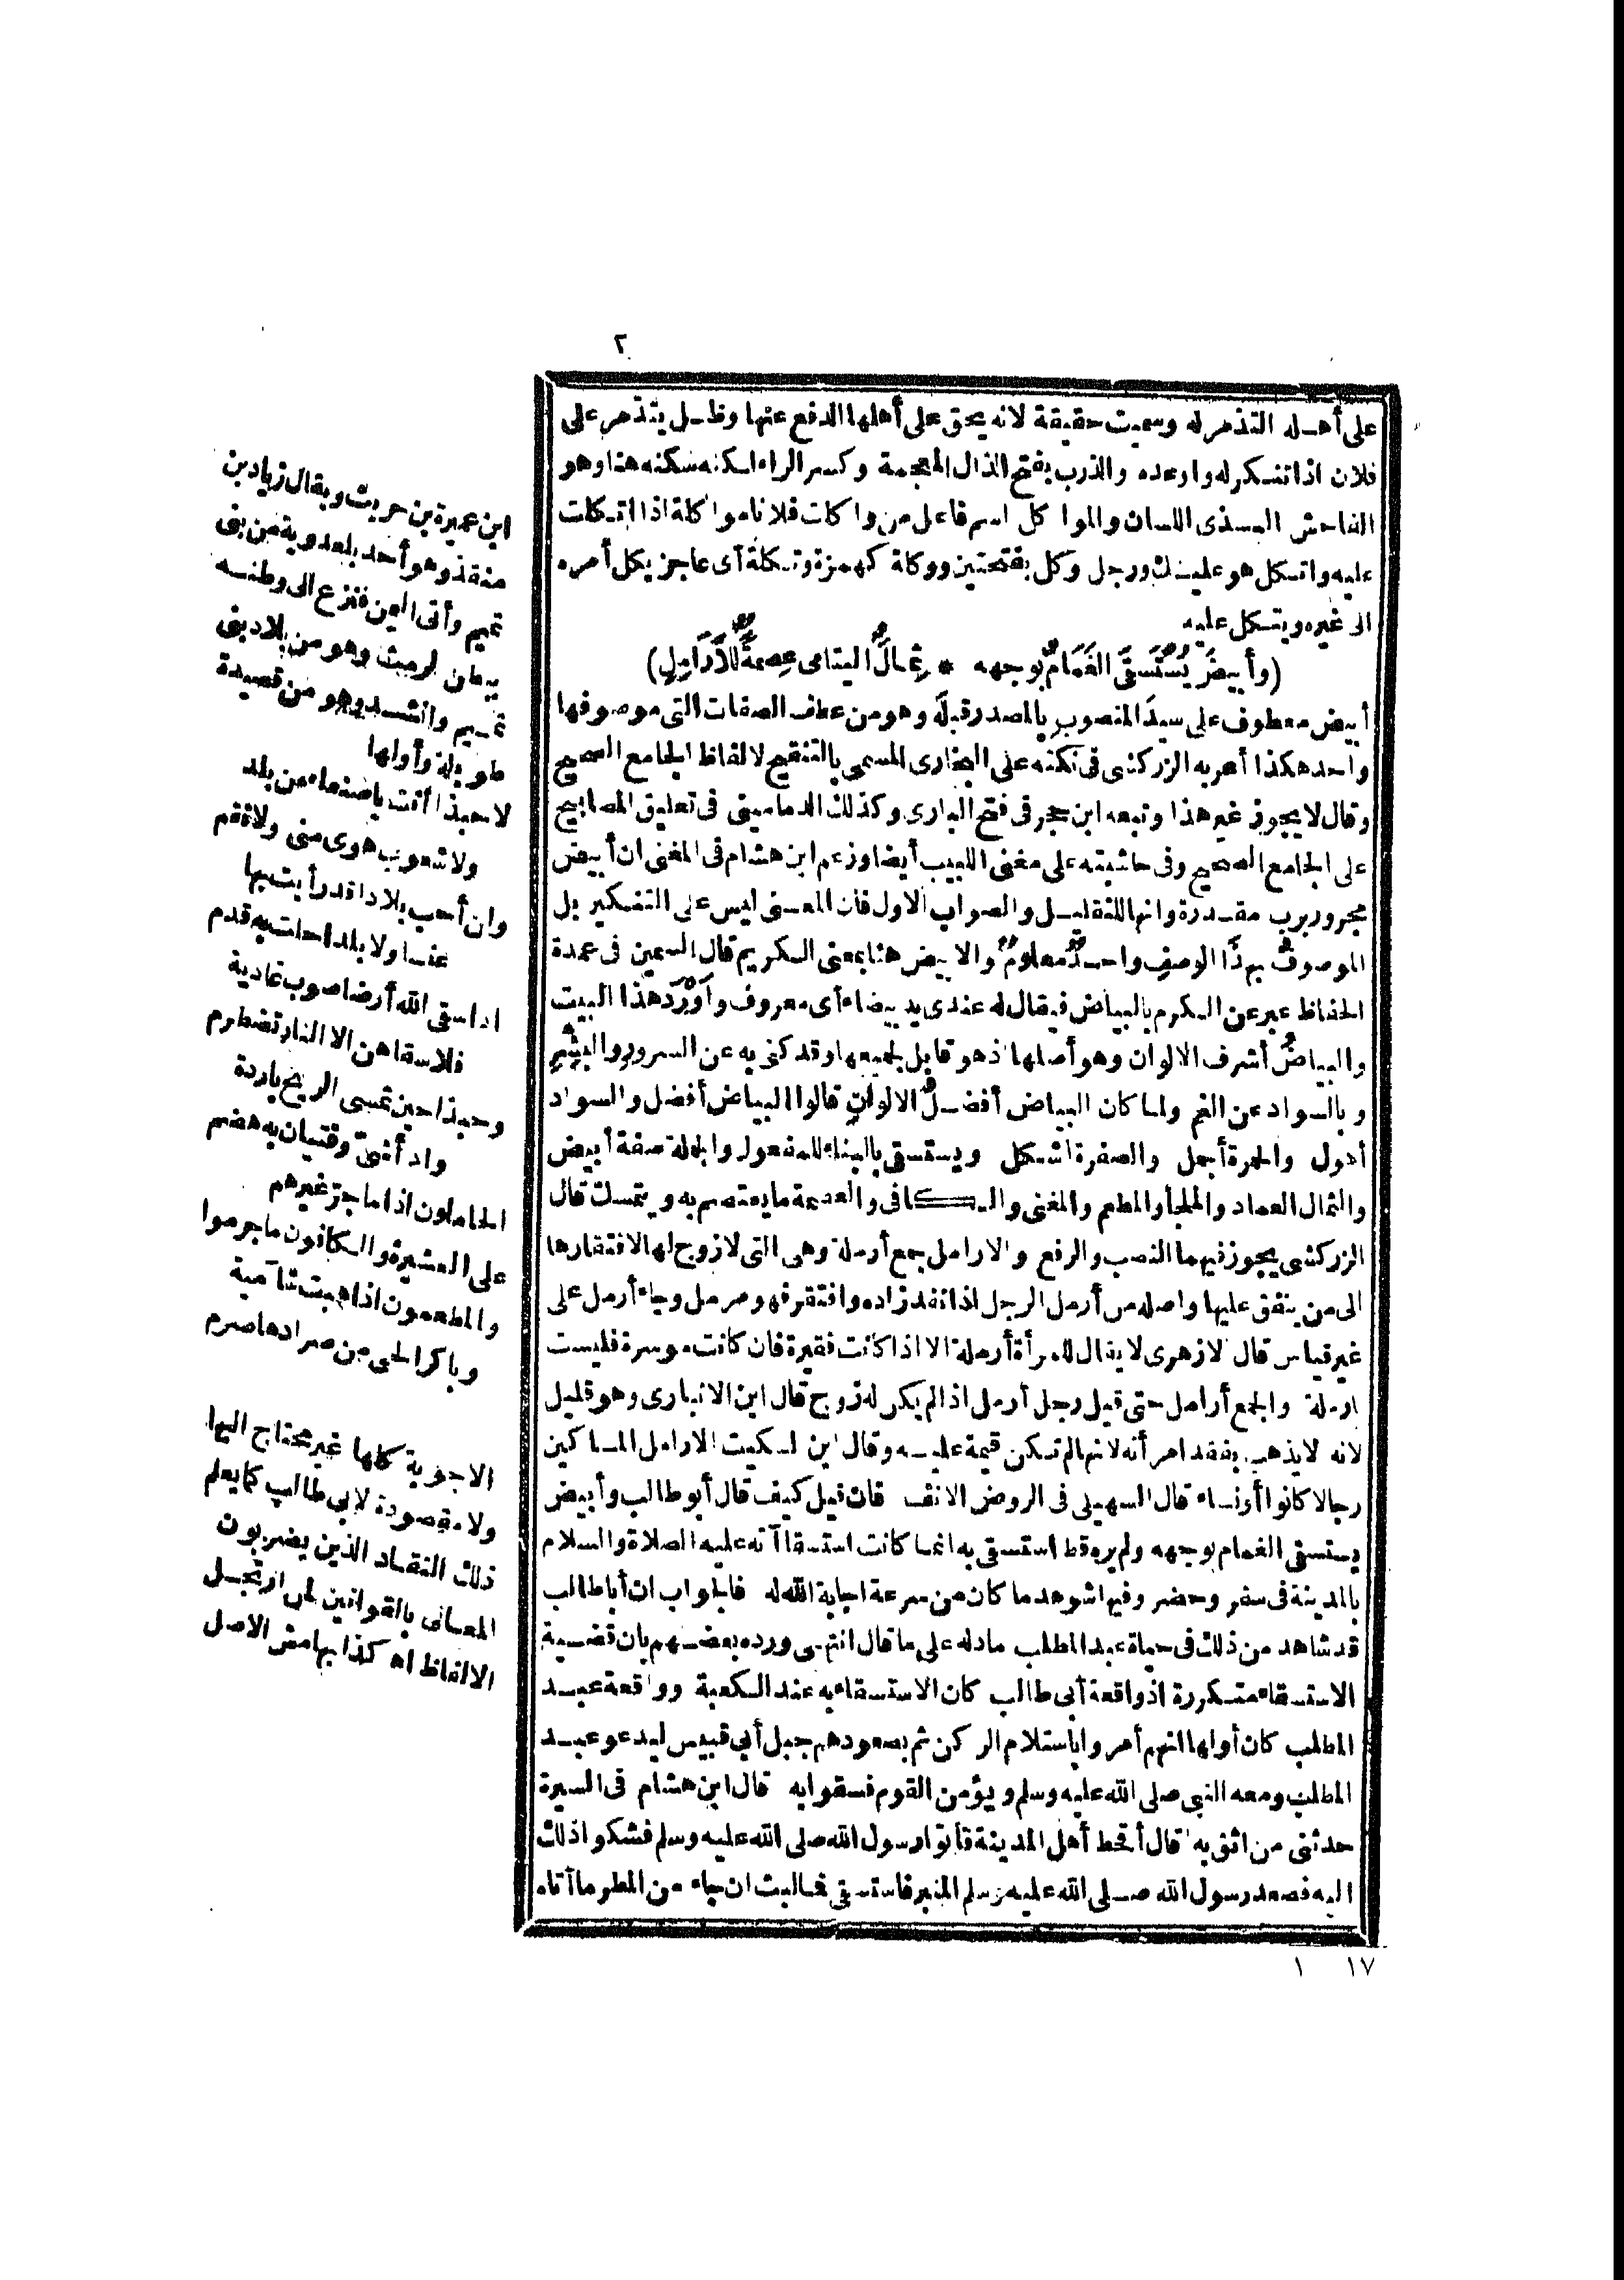 ٢
على أهله التذمر له وسميت حقيقة لانه يحق على أهلها الدفع عنها وظل يتذمر على
فلان اذا تنكر له وأوعده والذرب بفتح الذال المعجمة وكسر الراء اسكنه هنا وهو
الفاحش البذى اللسان والموا كل اسم فاعل من واكلت فلانا مواكلة اذا اتكلت
عليه واتكل هو عليك ورجل وكل بفتحتين ووكلة كهمزة وتكلة أى عاجز يكل أمره
الى غيره ويتكل عليه
(وأبيضَ يُسْتَسْقَى الغَمَامُ بوجهه * ثِمَالُ اليتامى عِصمةٌ للأَرَامِلِ)
أبيض معطوف على سيدَ المنصوب بالمصدر قبله وهو من عطف الصفات التى موصوفها
واحد هكذا أعربه الزركشى فى نكته على البخارى المسمى بالتنقيح لالفاظ الجامع الصحيح
وقال لا يجوز غير هذا وتبعه ابن حجر فى فتح البارى وكذلك الدمامينى فى تعليق المصابيح
على الجامع الصحيح وفى حاشيته على مغنى اللبيب أيضا وزعم ابن هشام فى المغنى ان أبيض
مجرور برب مقدرة وانها للتقليل والصواب الاول فان المعنى ليس على التنكير بل
الموصوفُ بهذا الوصفِ واحدٌ معلومٌ والابيض هنا بمعنى الكريم قال السمين فى عمدة
الحفاظ عبر عن الكرم بالبياض فيقال له عندى يد بيضاء أى معروف وأَوْرَدَ هذا البيت
والبياضُ أشرف الالوان وهو أصلها اذ هو قابل لجميعها وقد كنى به عن السرور والبِشْرِ
وبالسواد عن الغم ولما كان البياض أفضلُ الالوانِ قالوا البياض أفضل والسواد
أهول والحمرة أجمل والصفرة اشكل ويستسقى بالبناء للمفعول والجملة صفة أبيض
والثمال العماد والملجأ والمطعم والمغنى والكافى والعصمة ما يعتصم به ويتمسك قال
الزركشى يجوز فيهما النصب والرفع والارامل جمع أرملة وهى التى لا زوج لها لافتقارها
الى من ينفق عليها واصله من أرمل الرجل اذا نفد زاده وافتقر فهو مرمل وجاء أرمل على
غير قياس قال الازهرى لا يقال للمرأة أرملة الا اذا كانت فقيرة فان كانت موسرة فليست
ارملة والجمع أرامل حتى قيل رجل أرمل اذا لم يكن له زوج قال ابن الانبارى وهو قليل
لانه لا يذهب بفقد امرأته لانها لم تكن قيمة عليه وقال ابن السكيت الارامل المساكين
رجالا كانوا أو نساء قال السهيلى فى الروض الانف فان قيل كيف قال أبو طالب وأبيض
يستسقى الغمام بوجهه ولم يره قط استسقى به انما كانت استسقاآته عليه الصلاة والسلام
بالمدينة فى سفر وحضر وفيها شوهد ما كان من سرعة اجابة الله له فالجواب ان أبا طالب
قد شاهد من ذلك فى حياة عبد المطلب ما دله على ما قال انتهى ورده بعضهم بان قضية
الاستسقاء متكررة اذ واقعة أبى طالب كان الاستسقاء به عند الكعبة وواقعة عبد
المطلب كان أولها انهم أمروا باستلام الركن ثم بصعودهم جبل أبى قبيس ليدعو عبد
المطلب ومعه النبى صلى الله عليه وسلم ويؤمن القوم فسقوا به قال ابن هشام فى السيرة
حدثنى من اثق به قال أقحط أهل المدينة فأتوا رسول الله صلى الله عليه وسلم فشكوا ذلك
اليه فصعد رسول الله صلى الله عليه وسلم المنبر فاستسقى فما لبث ان جاء من المطر ما آتاه
١٧ ١
ابن عميرة بن حريث ويقال زياد بن
منقذ وهو أحد بلعدوية من بنى
تميم وأتى اليمن فنزع الى وطنه
ببطن الرمث وهو من بلاد بنى
تميم وانشد وهو من قصيدة
طويلة وأولها
لا حبذا أنت يا صنعاء من بلد
ولا شعوب هوى منى ولا نقم
ولن أحب بلادا قد رأيت بها
عنسا ولا بلدا حلت به قدم
اذا سقى الله أرضا صوب غادية
فلا سقاهن الا النار تضطرم
وحبذا حين تمسى الريح باردة
وادى أشىّ وفتيان به هضم
الحاملون اذا ما جر غيرهم
على العشيرة والكافون ما جرموا
والمطعمون اذا هبت شآمية
وباكر الحى من صرادها صرم
الاجوبة كلها غير محتاج اليها
ولا مقصودة لابى طالب كما يعلم
ذلك النقاد الذين يضربون
المعانى بالقوانين لمن ارتجل
الالفاظ اه كذا بهامش الاصل